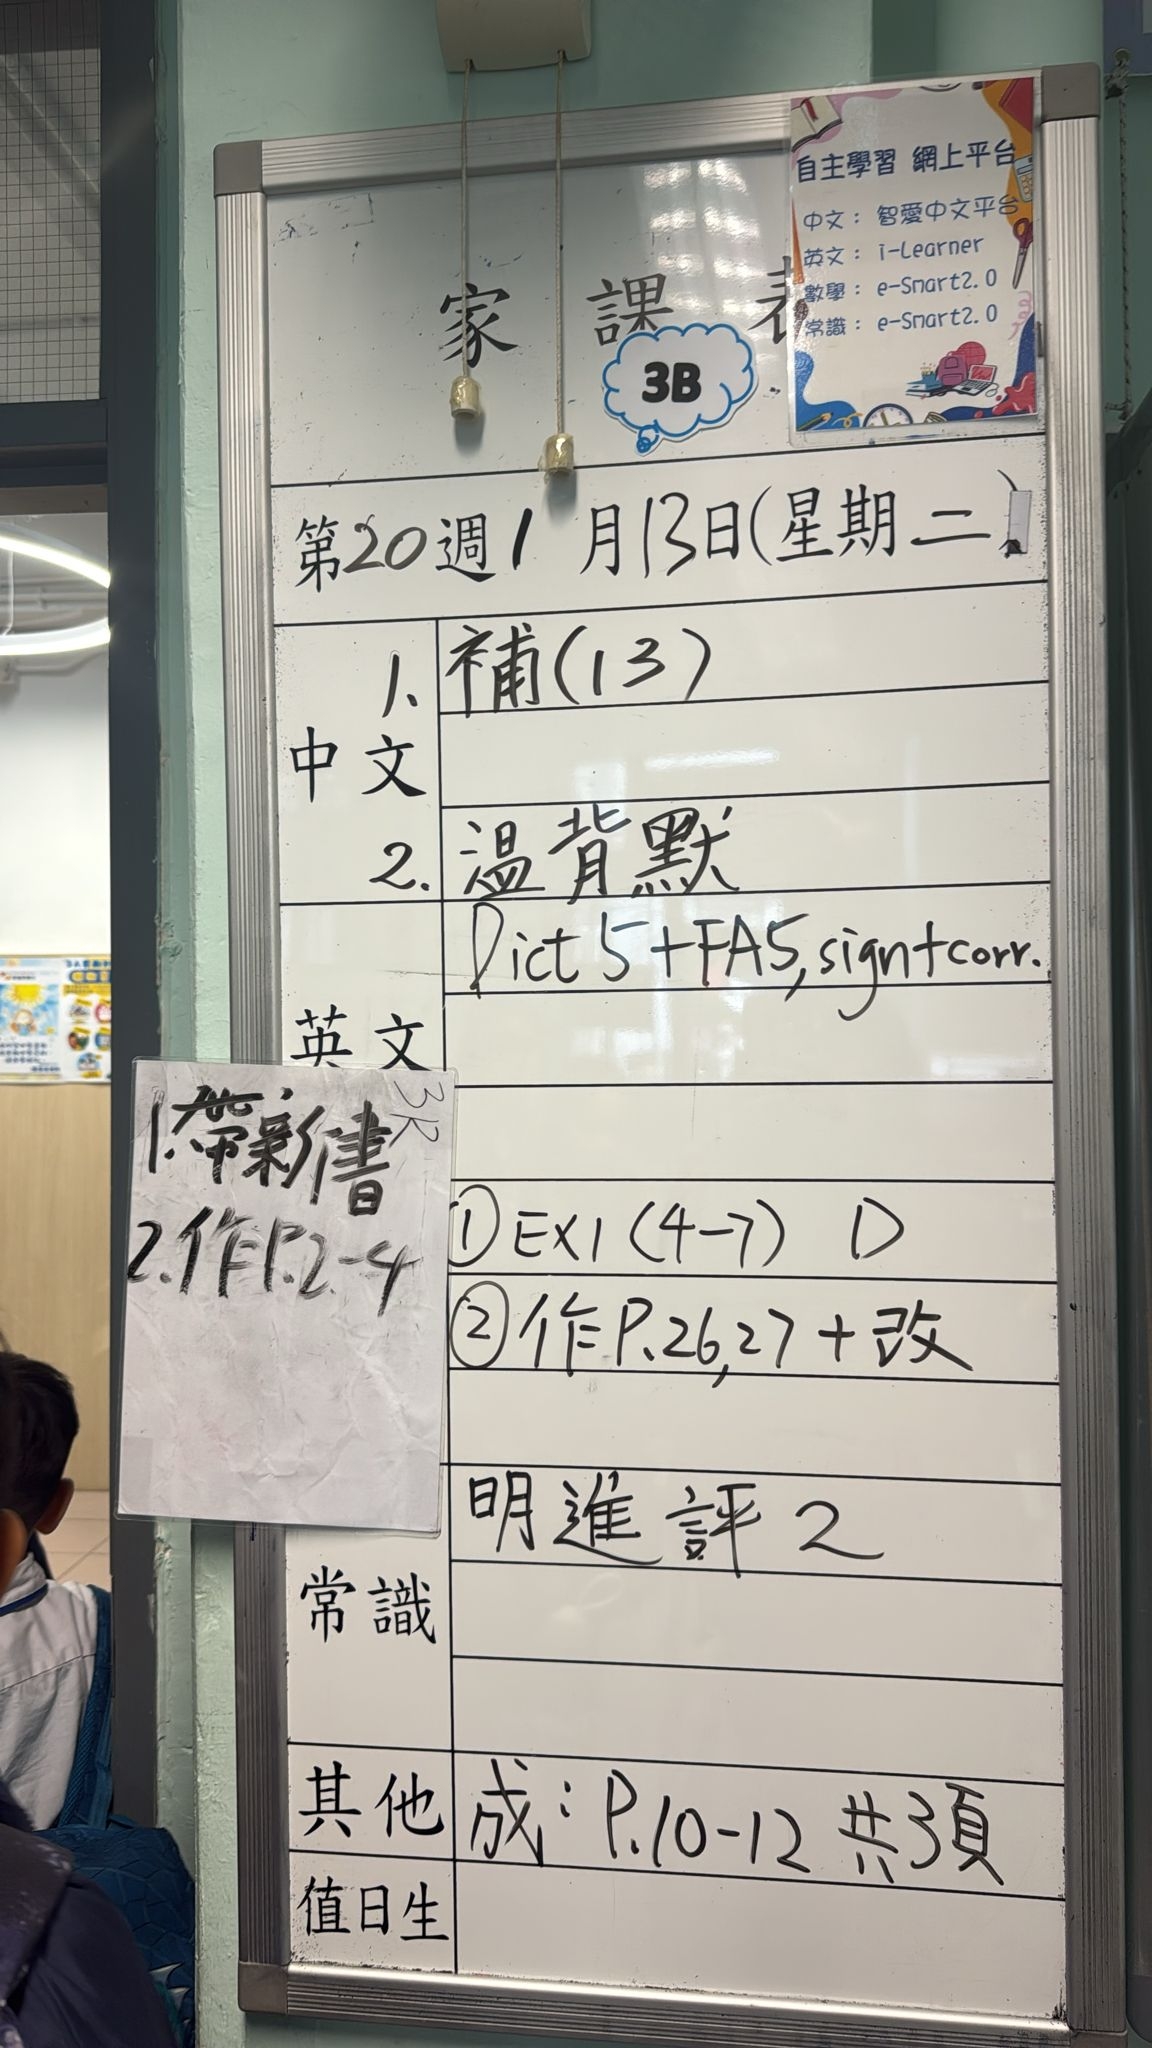 自主學習 網上平台
中文： 智愛中文平台
英文： i-Learner
數學： e-Smart2.0
常識： e-Smart2.0
家 課 表
3B
第20週1 月13日(星期二)
中文
1. 補(13)
2. 溫背默
英文
Dict 5+FA5, sign+corr.
1.帶新書
2.作P.2-4
① EX1 (4-7) D
② 作P.26,27 + 改
常識
明進評2
其他
成：P.10-12 共3頁
值日生